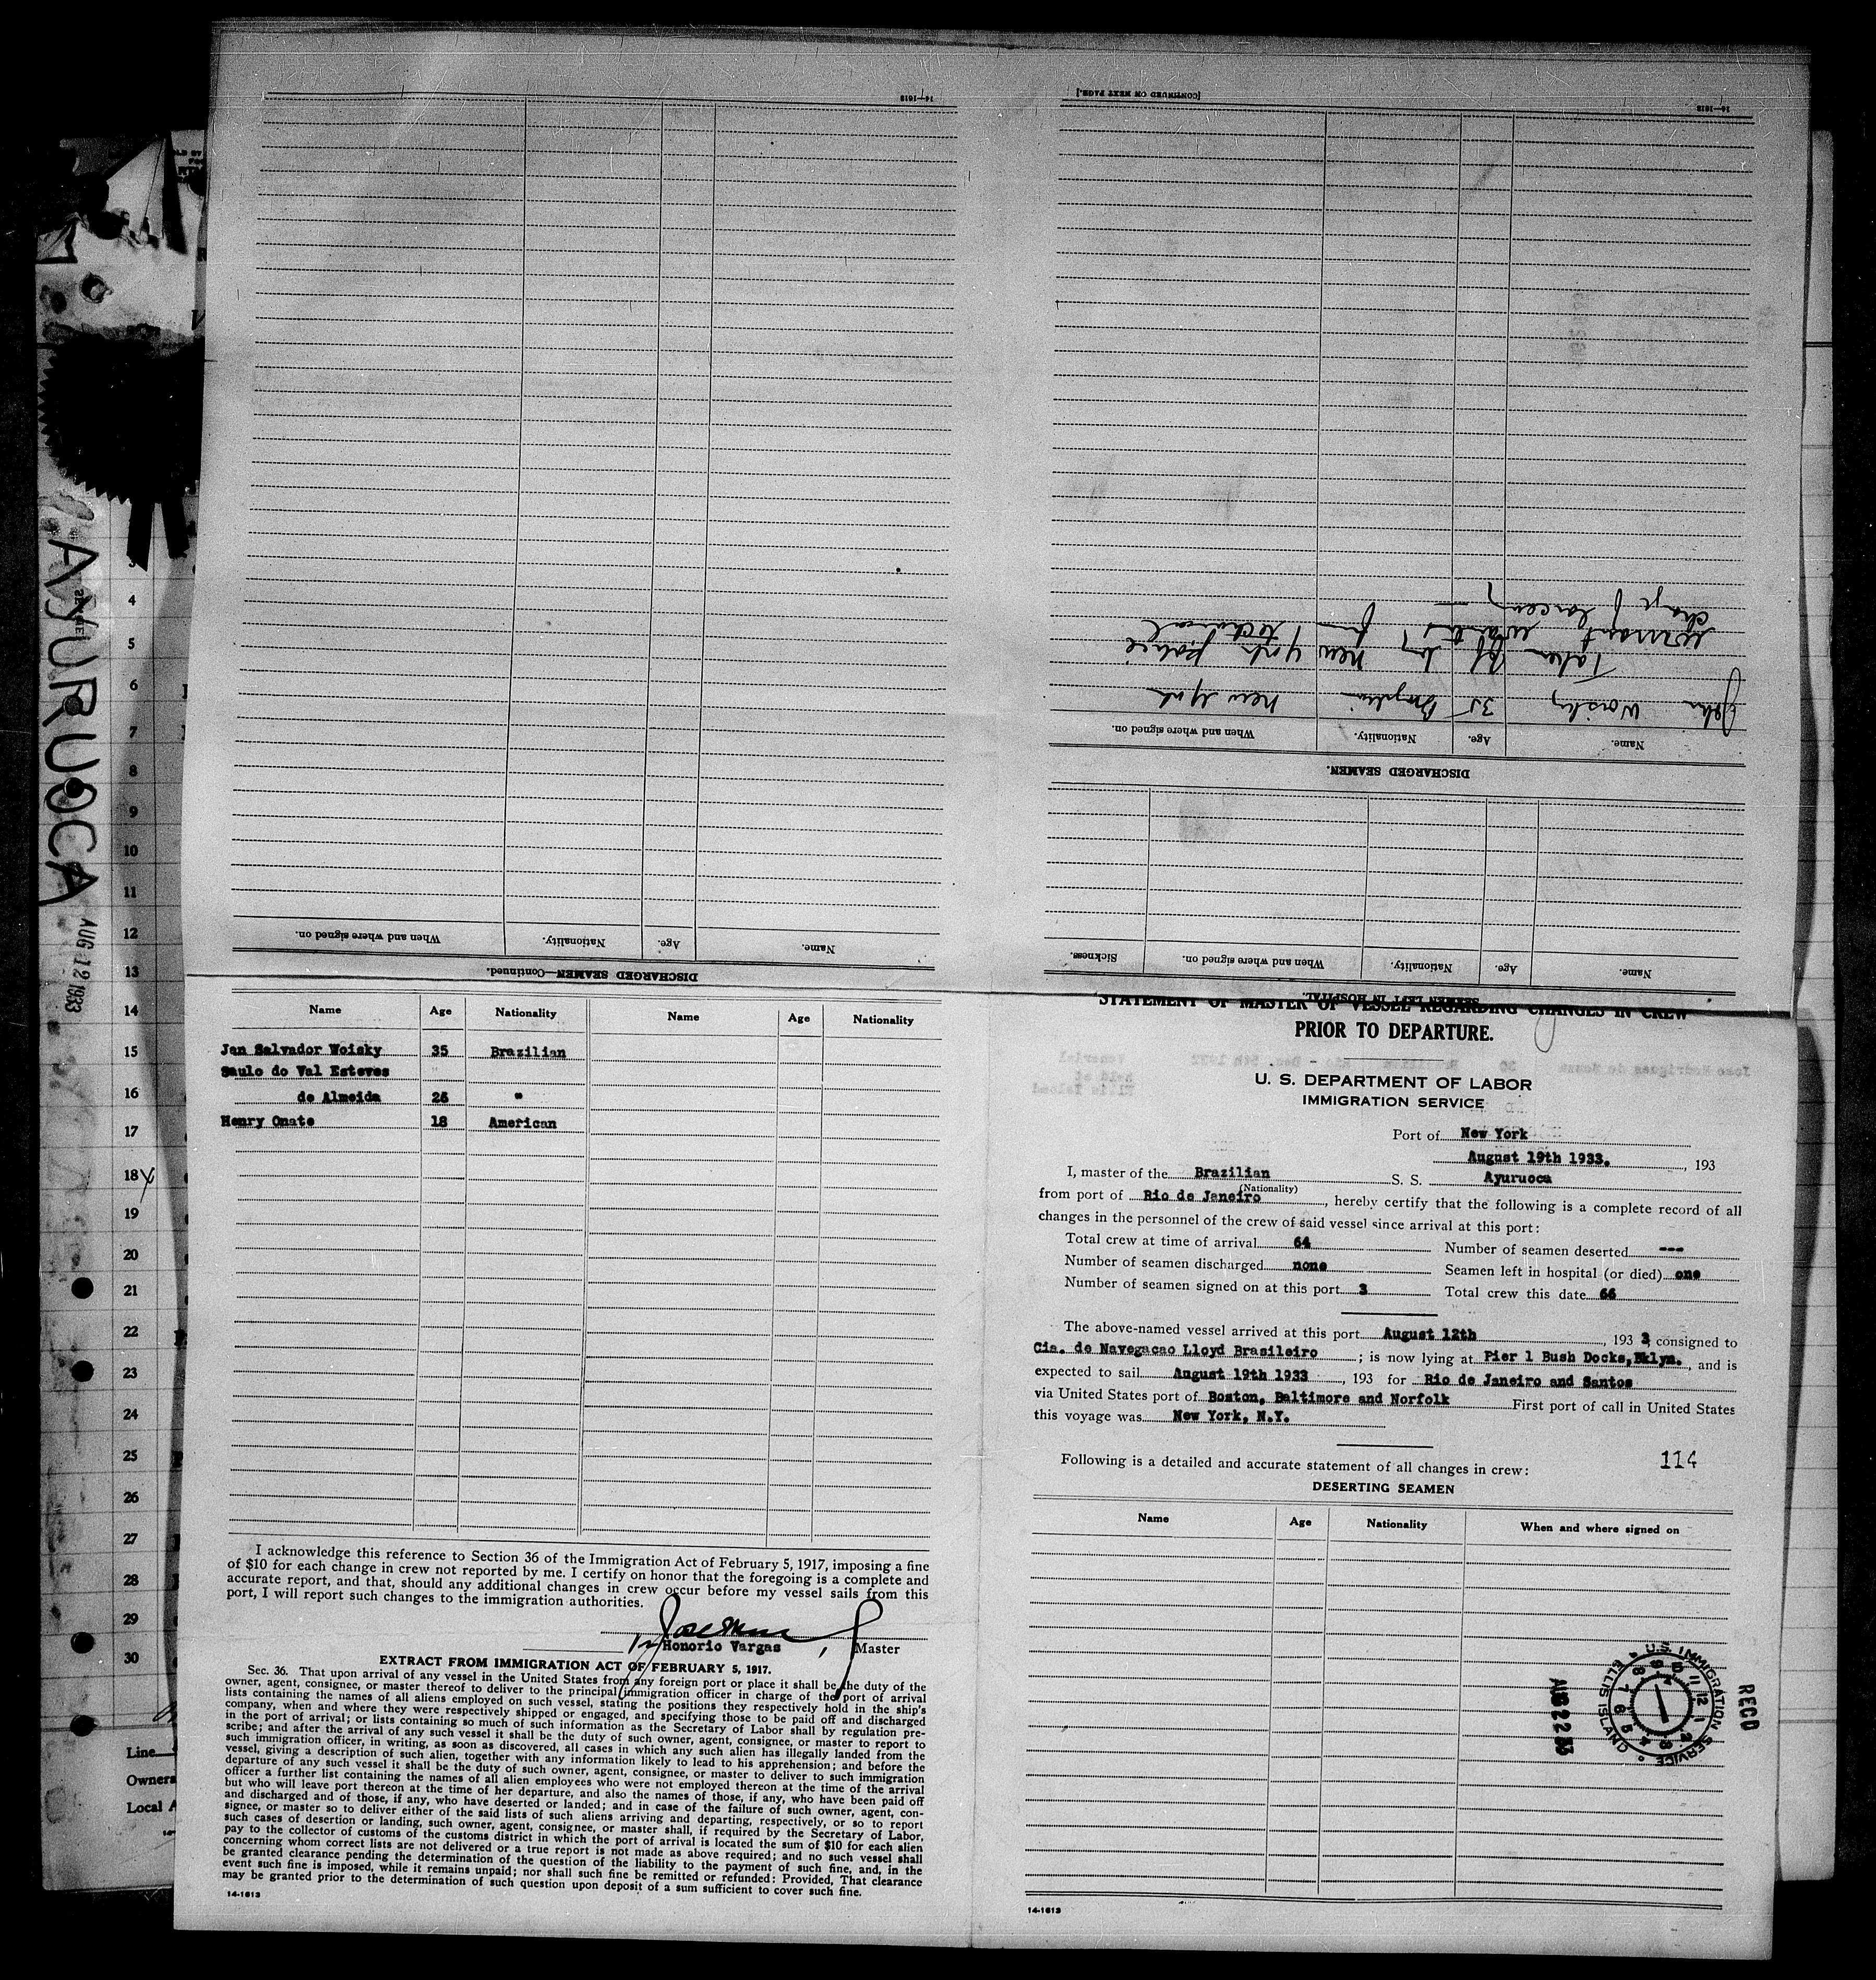 AYURUOCA
AUG 12 1933
4
5
6
7
8
9
10
11
12
13
14
15
16
17
18
19
20
21
22
23
24
25
26
27
28
29
30
Line
Owners
Local A
14-1613
DISCHARGED SEAMEN—Continued.
Name. Age. Nationality. When and where signed on.
14-1613
[CONTINUED ON NEXT PAGE.]
SEAMEN LEFT IN HOSPITAL.
Name. Age. Nationality. When and where signed on. Sickness.
DISCHARGED SEAMEN.
Name. Age. Nationality. When and where signed on.
John Woisky 35 Brazilian New York
Taken off by New York police
warrant
charge of larceny
Name Age Nationality Name Age Nationality
Jan Salvador Woisky 35 Brazilian
Saulo do Val Esteves
de Almeida 26 "
Henry Onate 18 American
I acknowledge this reference to Section 36 of the Immigration Act of February 5, 1917, imposing a fine
of $10 for each change in crew not reported by me. I certify on honor that the foregoing is a complete and
accurate report, and that, should any additional changes in crew occur before my vessel sails from this
port, I will report such changes to the immigration authorities.
Honorio Vargas, Master
EXTRACT FROM IMMIGRATION ACT OF FEBRUARY 5, 1917.
Sec. 36. That upon arrival of any vessel in the United States from any foreign port or place it shall be the duty of the
owner, agent, consignee, or master thereof to deliver to the principal immigration officer in charge of the port of arrival
lists containing the names of all aliens employed on such vessel, stating the positions they respectively hold in the ship's
company, when and where they were respectively shipped or engaged, and specifying those to be paid off and discharged
in the port of arrival; or lists containing so much of such information as the Secretary of Labor shall by regulation pre-
scribe; and after the arrival of any such vessel it shall be the duty of such owner, agent, consignee, or master to report to
such immigration officer, in writing, as soon as discovered, all cases in which any such alien has illegally landed from the
vessel, giving a description of such alien, together with any information likely to lead to his apprehension; and before the
departure of any such vessel it shall be the duty of such owner, agent, consignee, or master to deliver to such immigration
officer a further list containing the names of all alien employees who were not employed thereon at the time of the arrival
but who will leave port thereon at the time of her departure, and also the names of those, if any, who have been paid off
and discharged and of those, if any, who have deserted or landed; and in case of the failure of such owner, agent, con-
signee, or master so to deliver either of the said lists of such aliens arriving and departing, respectively, or so to report
such cases of desertion or landing, such owner, agent, consignee, or master shall, if required by the Secretary of Labor,
pay to the collector of customs of the customs district in which the port of arrival is located the sum of $10 for each alien
concerning whom correct lists are not delivered or a true report is not made as above required; and no such vessel shall
be granted clearance pending the determination of the question of the liability to the payment of such fine, and, in the
event such fine is imposed, while it remains unpaid; nor shall such fine be remitted or refunded: Provided, That clearance
may be granted prior to the determination of such question upon deposit of a sum sufficient to cover such fine.
14-1613
STATEMENT OF MASTER OF VESSEL REGARDING CHANGES IN CREW
PRIOR TO DEPARTURE.
U. S. DEPARTMENT OF LABOR
IMMIGRATION SERVICE
Port of New York
August 19th 1933. , 193
I, master of the Brazilian S. S. Ayuruoca
(Nationality)
from port of Rio de Janeiro , hereby certify that the following is a complete record of all
changes in the personnel of the crew of said vessel since arrival at this port:
Total crew at time of arrival 64 Number of seamen deserted ---
Number of seamen discharged none Seamen left in hospital (or died) one
Number of seamen signed on at this port 3 Total crew this date 66
The above-named vessel arrived at this port August 12th , 193 3, consigned to
Cia. de Navegacao Lloyd Brasileiro ; is now lying at Pier 1 Bush Docks, Bklyn. , and is
expected to sail August 19th 1933 , 193 for Rio de Janeiro and Santos
via United States port of Boston, Baltimore and Norfolk First port of call in United States
this voyage was New York, N.Y.
114
Following is a detailed and accurate statement of all changes in crew:
DESERTING SEAMEN
Name Age Nationality When and where signed on
RECD
U.S. IMMIGRATION SERVICE
ELLIS ISLAND
AUG 22 33
14-1613